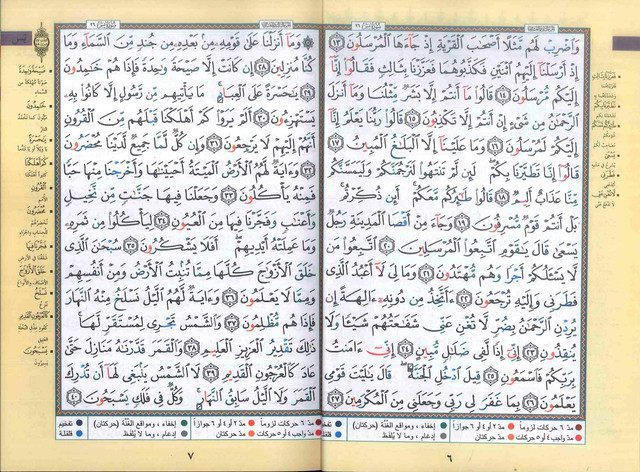 وَٱضْرِبْ لَهُم مَّثَلًا أَصْحَٰبَ ٱلْقَرْيَةِ إِذْ جَآءَهَا ٱلْمُرْسَلُونَ ١٣
إِذْ أَرْسَلْنَآ إِلَيْهِمُ ٱثْنَيْنِ فَكَذَّبُوهُمَا فَعَزَّزْنَا بِثَالِثٍ فَقَالُوٓا۟ إِنَّآ
إِلَيْكُم مُّرْسَلُونَ ١٤ قَالُوا۟ مَآ أَنتُمْ إِلَّا بَشَرٌ مِّثْلُنَا وَمَآ أَنزَلَ
ٱلرَّحْمَٰنُ مِن شَىْءٍ إِنْ أَنتُمْ إِلَّا تَكْذِبُونَ ١٥ قَالُوا۟ رَبُّنَا يَعْلَمُ إِنَّآ
إِلَيْكُمْ لَمُرْسَلُونَ ١٦ وَمَا عَلَيْنَآ إِلَّا ٱلْبَلَٰغُ ٱلْمُبِينُ ١٧
قَالُوٓا۟ إِنَّا تَطَيَّرْنَا بِكُمْ لَئِن لَّمْ تَنتَهُوا۟ لَنَرْجُمَنَّكُمْ وَلَيَمَسَّنَّكُم
مِّنَّا عَذَابٌ أَلِيمٌ ١٨ قَالُوا۟ طَٰٓئِرُكُم مَّعَكُمْ أَئِن ذُكِّرْتُم
بَلْ أَنتُمْ قَوْمٌ مُّسْرِفُونَ ١٩ وَجَآءَ مِنْ أَقْصَا ٱلْمَدِينَةِ رَجُلٌ
يَسْعَىٰ قَالَ يَٰقَوْمِ ٱتَّبِعُوا۟ ٱلْمُرْسَلِينَ ٢٠ ٱتَّبِعُوا۟ مَن
لَّا يَسْـَٔلُكُمْ أَجْرًا وَهُم مُّهْتَدُونَ ٢١ وَمَا لِىَ لَآ أَعْبُدُ ٱلَّذِى
فَطَرَنِى وَإِلَيْهِ تُرْجَعُونَ ٢٢ ءَأَتَّخِذُ مِن دُونِهِۦٓ ءَالِهَةً إِن
يُرِدْنِ ٱلرَّحْمَٰنُ بِضُرٍّ لَّا تُغْنِ عَنِّى شَفَٰعَتُهُمْ شَيْـًٔا وَلَا
يُنقِذُونِ ٢٣ إِنِّىٓ إِذًا لَّفِى ضَلَٰلٍ مُّبِينٍ ٢٤ إِنِّىٓ ءَامَنتُ
بِرَبِّكُمْ فَٱسْمَعُونِ ٢٥ قِيلَ ٱدْخُلِ ٱلْجَنَّةَ قَالَ يَٰلَيْتَ قَوْمِى
يَعْلَمُونَ ٢٦ بِمَا غَفَرَ لِى رَبِّى وَجَعَلَنِى مِنَ ٱلْمُكْرَمِينَ ٢٧
مدّ ٦ حركات لزوماً مدّ ٢ أو ٤ أو ٦ جوازاً إخفاء، ومواقع الغُنّة (حركتان) تفخيم
مدّ واجب ٤ أو ٥ حركات مدّ حركتان إدغام، وما لا يُلفظ قلقلة
٦
وَمَآ أَنزَلْنَا عَلَىٰ قَوْمِهِۦ مِنۢ بَعْدِهِۦ مِن جُندٍ مِّنَ ٱلسَّمَآءِ وَمَا
كُنَّا مُنزِلِينَ ٢٨ إِن كَانَتْ إِلَّا صَيْحَةً وَٰحِدَةً فَإِذَا هُمْ خَٰمِدُونَ
٢٩ يَٰحَسْرَةً عَلَى ٱلْعِبَادِ مَا يَأْتِيهِم مِّن رَّسُولٍ إِلَّا كَانُوا۟ بِهِۦ
يَسْتَهْزِءُونَ ٣٠ أَلَمْ يَرَوْا۟ كَمْ أَهْلَكْنَا قَبْلَهُم مِّنَ ٱلْقُرُونِ
أَنَّهُمْ إِلَيْهِمْ لَا يَرْجِعُونَ ٣١ وَإِن كُلٌّ لَّمَّا جَمِيعٌ لَّدَيْنَا مُحْضَرُونَ
٣٢ وَءَايَةٌ لَّهُمُ ٱلْأَرْضُ ٱلْمَيْتَةُ أَحْيَيْنَٰهَا وَأَخْرَجْنَا مِنْهَا حَبًّا
فَمِنْهُ يَأْكُلُونَ ٣٣ وَجَعَلْنَا فِيهَا جَنَّٰتٍ مِّن نَّخِيلٍ
وَأَعْنَٰبٍ وَفَجَّرْنَا فِيهَا مِنَ ٱلْعُيُونِ ٣٤ لِيَأْكُلُوا۟ مِن ثَمَرِهِۦ
وَمَا عَمِلَتْهُ أَيْدِيهِمْ أَفَلَا يَشْكُرُونَ ٣٥ سُبْحَٰنَ ٱلَّذِى
خَلَقَ ٱلْأَزْوَٰجَ كُلَّهَا مِمَّا تُنۢبِتُ ٱلْأَرْضُ وَمِنْ أَنفُسِهِمْ
وَمِمَّا لَا يَعْلَمُونَ ٣٦ وَءَايَةٌ لَّهُمُ ٱلَّيْلُ نَسْلَخُ مِنْهُ ٱلنَّهَارَ
فَإِذَا هُم مُّظْلِمُونَ ٣٧ وَٱلشَّمْسُ تَجْرِى لِمُسْتَقَرٍّ لَّهَا
ذَٰلِكَ تَقْدِيرُ ٱلْعَزِيزِ ٱلْعَلِيمِ ٣٨ وَٱلْقَمَرَ قَدَّرْنَٰهُ مَنَازِلَ حَتَّىٰ
عَادَ كَٱلْعُرْجُونِ ٱلْقَدِيمِ ٣٩ لَا ٱلشَّمْسُ يَنۢبَغِى لَهَآ أَن تُدْرِكَ
ٱلْقَمَرَ وَلَا ٱلَّيْلُ سَابِقُ ٱلنَّهَارِ وَكُلٌّ فِى فَلَكٍ يَسْبَحُونَ ٤٠
مدّ ٦ حركات لزوماً مدّ ٢ أو ٤ أو ٦ جوازاً إخفاء، ومواقع الغُنّة (حركتان) تفخيم
مدّ واجب ٤ أو ٥ حركات مدّ حركتان إدغام، وما لا يُلفظ قلقلة
٧